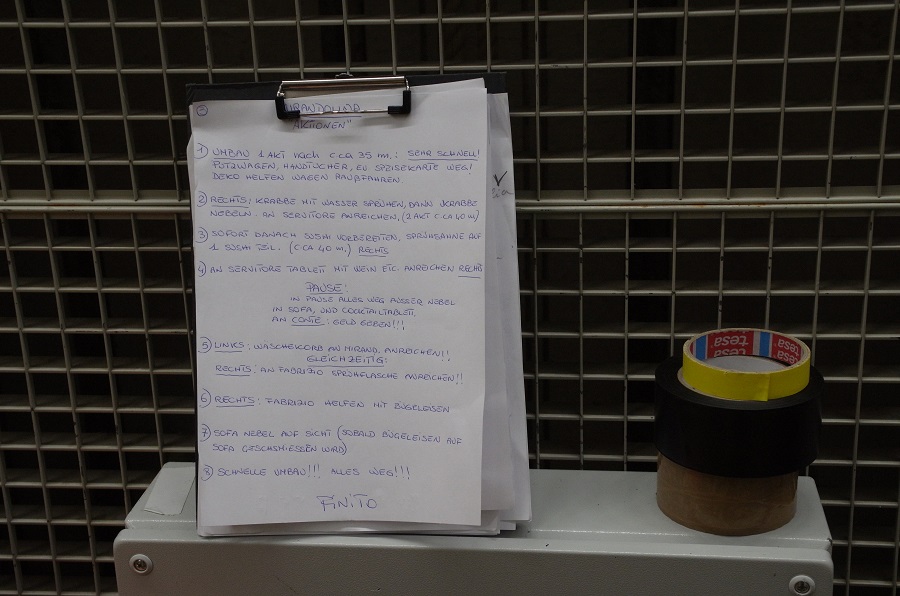 AKTIONEN"
1) UMBAU 1 AKT NACH CCA 35 m.: SEAR SCHNELL!
PUTZWAGEN, HANDTÜCHER, EV SPEISEKARTE WEG!
DEKO HELFEN WAGEN RAUßFAHREN.
2) RECHTS: KRABBE MIT WASSER SPRÜHEN, DANN KRABBE
NEBELN. AN SERVITORE ANREICHEN, (2 AKT CCA 40 m)
3) SOFORT DANACH SUSHI VORBEREITEN, SPRÜHSAHNE AUF
1 SUSHI (CCA 40 m.) RECHTS
4) AN SERVITORE TABLETT MIT WEIN ETC. ANREICHEN RECHTS
PAUSE:
IN PAUSE ALLES WEG AUSSER NEBEL
IN SOFA, UND COCKTAILTABLETT.
AN CONTE: GELD GEBEN!!!
5) LINKS: WASCHEKORB AN MIRAND. ANREICHEN!!
GLEICHZEITIG:
RECHTS: AN FABRIZIO SPRÜHFLASCHE ANREICHEN!!
6) RECHTS: FABRIZIO HELFEN MIT BÜGELEISEN
7) SOFA NEBEL AUF SICHT (SOBALD BÜGELEISEN AUF
SOFA GESCHSMIESSEN WIRD)
8) SCHNELLE UMBAU!!! ALLES WEG!!!
FINITO
tesa tesa tesa